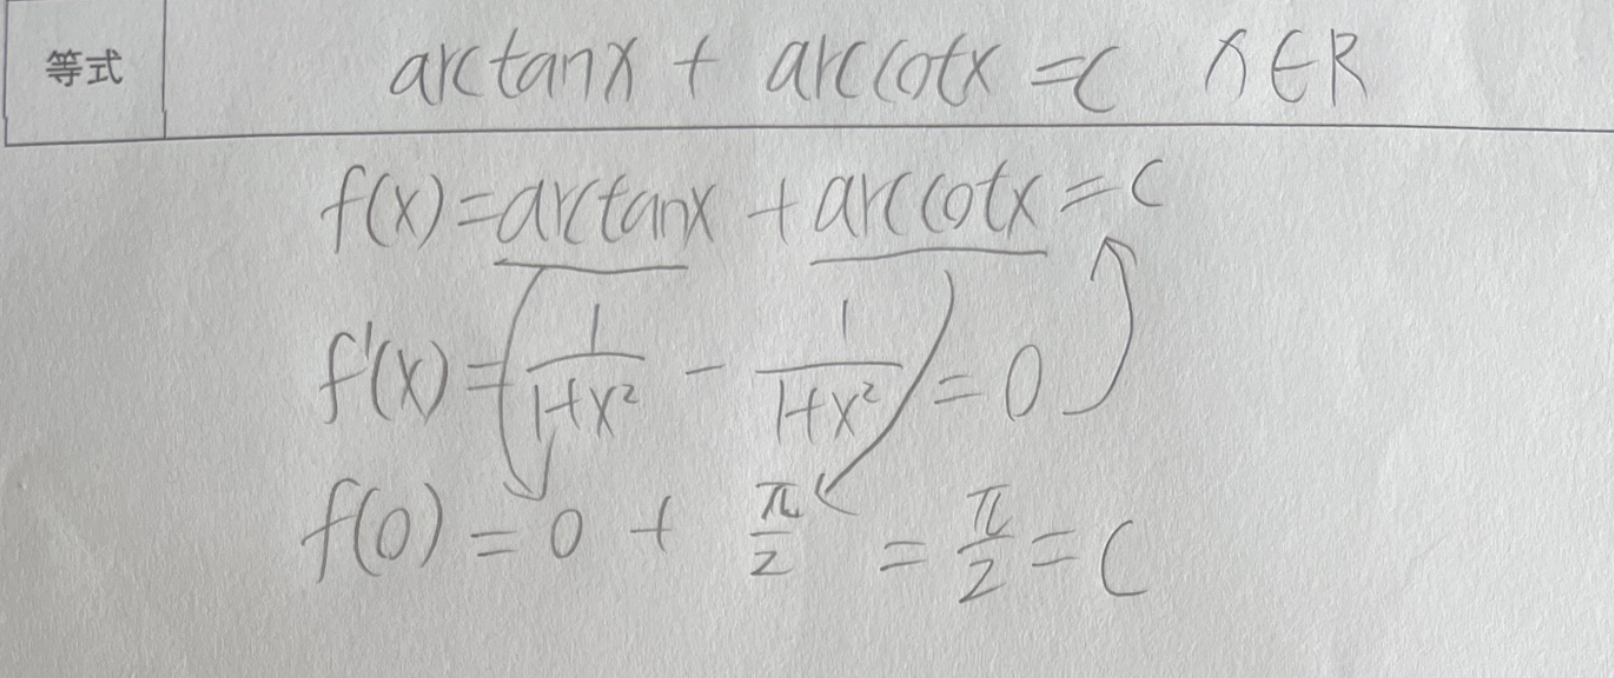 等式 arctanx + arccotx = C x∈R
f(x) = arctanx + arccotx = C
f'(x) = 1/(1+x²) - 1/(1+x²) = 0
f(0) = 0 + π/2 = π/2 = C